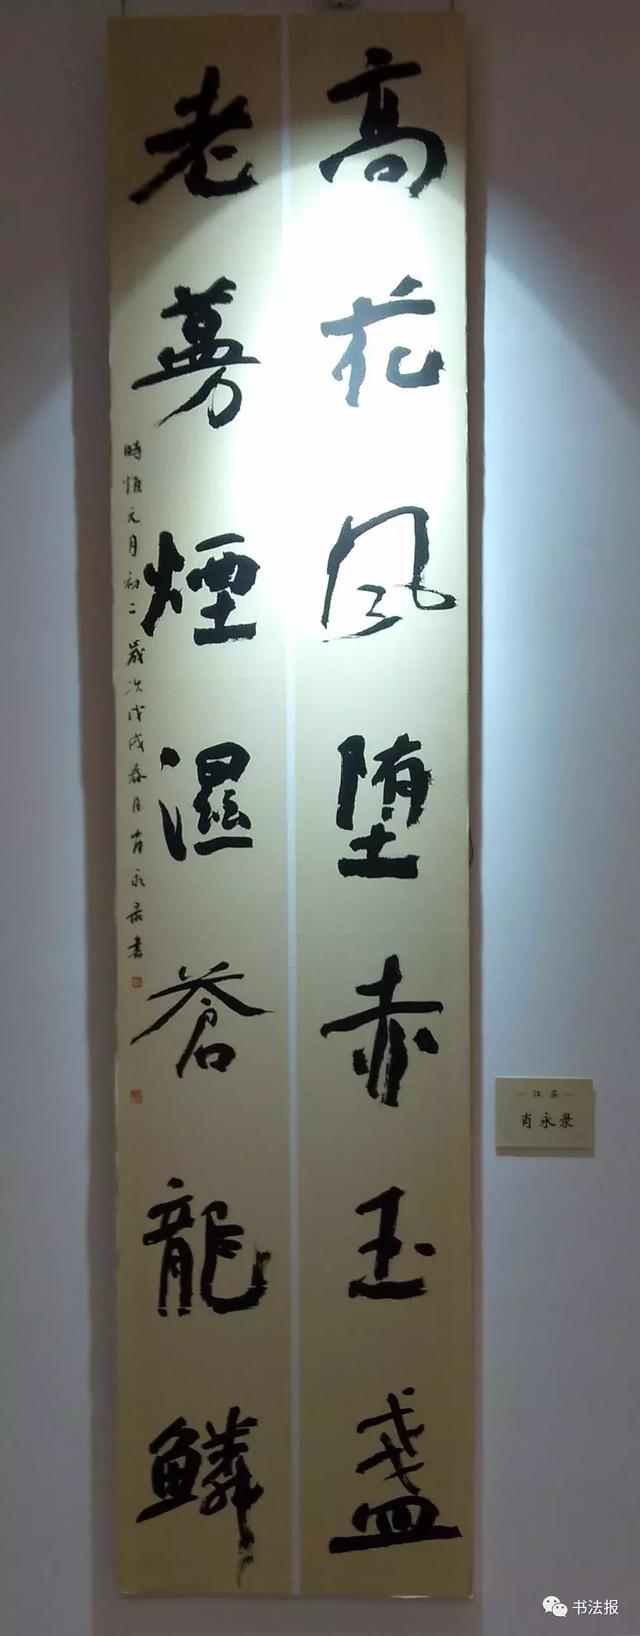 高花风堕赤玉盏
老蔓煙濕蒼龍鳞
時惟元月初二歲次戊戌春月肖永录書
江苏
肖永录
书法报